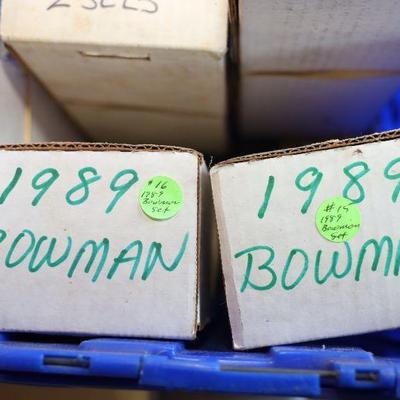 2 SETS
1989
BOWMAN
#16
1989
Bowman
Set
1989
BOWMA
#15
1989
Bowman
Set